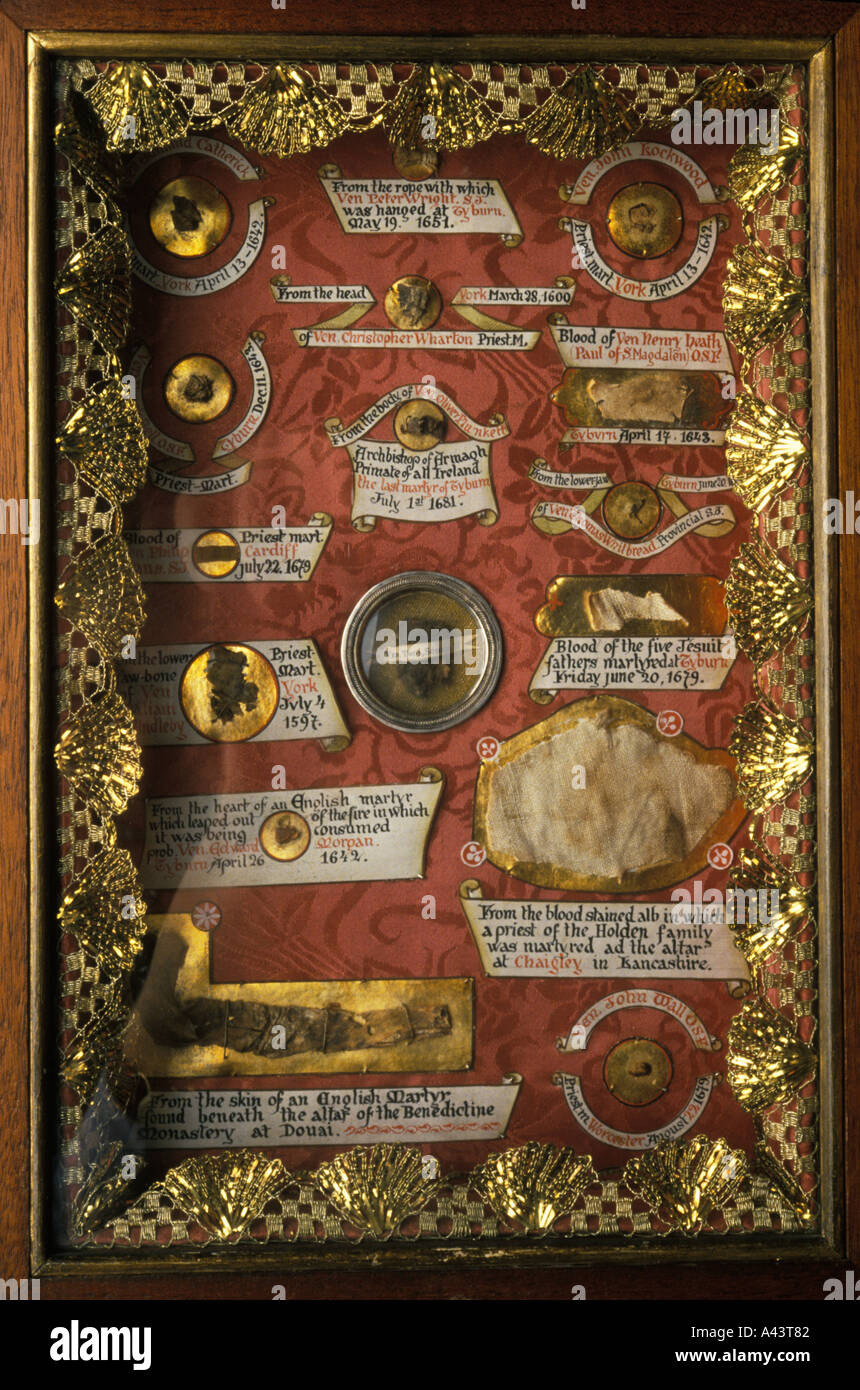 Catherick
mart. York April 13-1642.
From the rope with which
Ven Peter Wright. S.J.
was hanged at Tyburn.
May 19. 1651.
Ven. John Lockwood
Priest mart. York April 13-1642.
From the head
York March 28, 1600
of Ven. Christopher Wharton Priest.M.
Blood of Ven Henry Heath
Paul of S. Magdalen) O.S.F.
Tyburn April 17. 1643.
O.S.F.
Tyburn Dec 11. 1643.
Priest-Mart.
From the body of Ven. Oliver Plunkett
Archbishop of Armagh
Primate of all Ireland
the last martyr of Tyburn
July 1st 1681.
From the lower jaw
Tyburn June 20
of Ven. Thomas Whitbread Provincial S.J.
Blood of
Priest mart.
Ven Philip
Cardiff
S.J.
July 22. 1679
Blood of the five Jesuit
fathers martyred at Tyburn
Friday june 20, 1679.
the lower
Priest-
jaw-bone
Mart.
of Ven
York
July 4
1597.
From the heart of an English martyr
which leaped out of the fire in which
it was being consumed
prob. Ven. Edward Morgan.
Tyburn April 26 1642.
From the blood stained alb in which
a priest of the Holden family
was martyred ad the altar
at Chaigley in Lancashire.
From the skin of an English Martyr
found beneath the altar of the Benedictine
Monastery at Douai.
Ven. John Wall O.S.F.
Priest m. Worcester August 22 1679
alamy
a
alamy
Image ID: A43T82
www.alamy.com